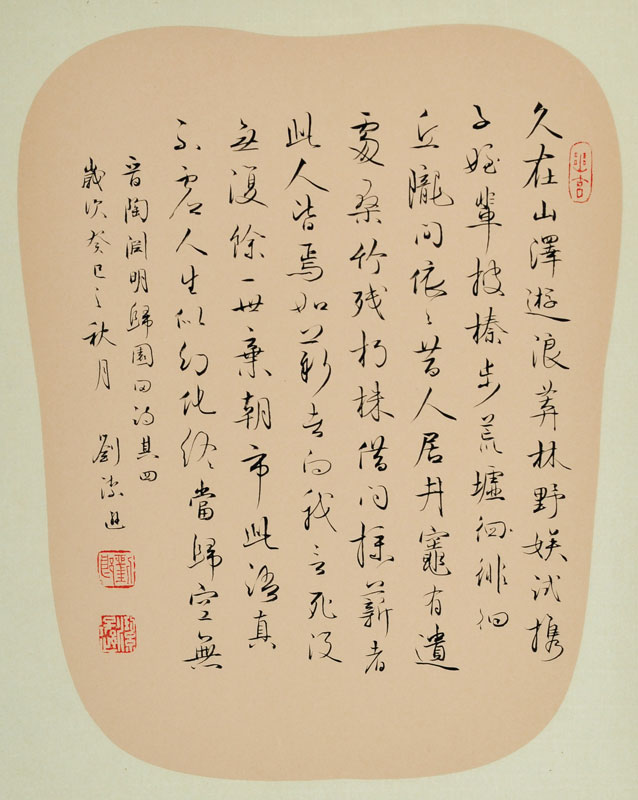 久在山澤遊浪莽林野娱試携
子姪輩披榛步荒墟徊徘徊
丘隴问依〻昔人居井竈有遺
處桑竹残朽株借问採薪者
此人皆焉如薪者向我言死没
無復餘一世棄朝市此語真
不虚人生似幻化終當歸空無
晉陶淵明歸園田詩其四
歲次癸巳之秋月
劉